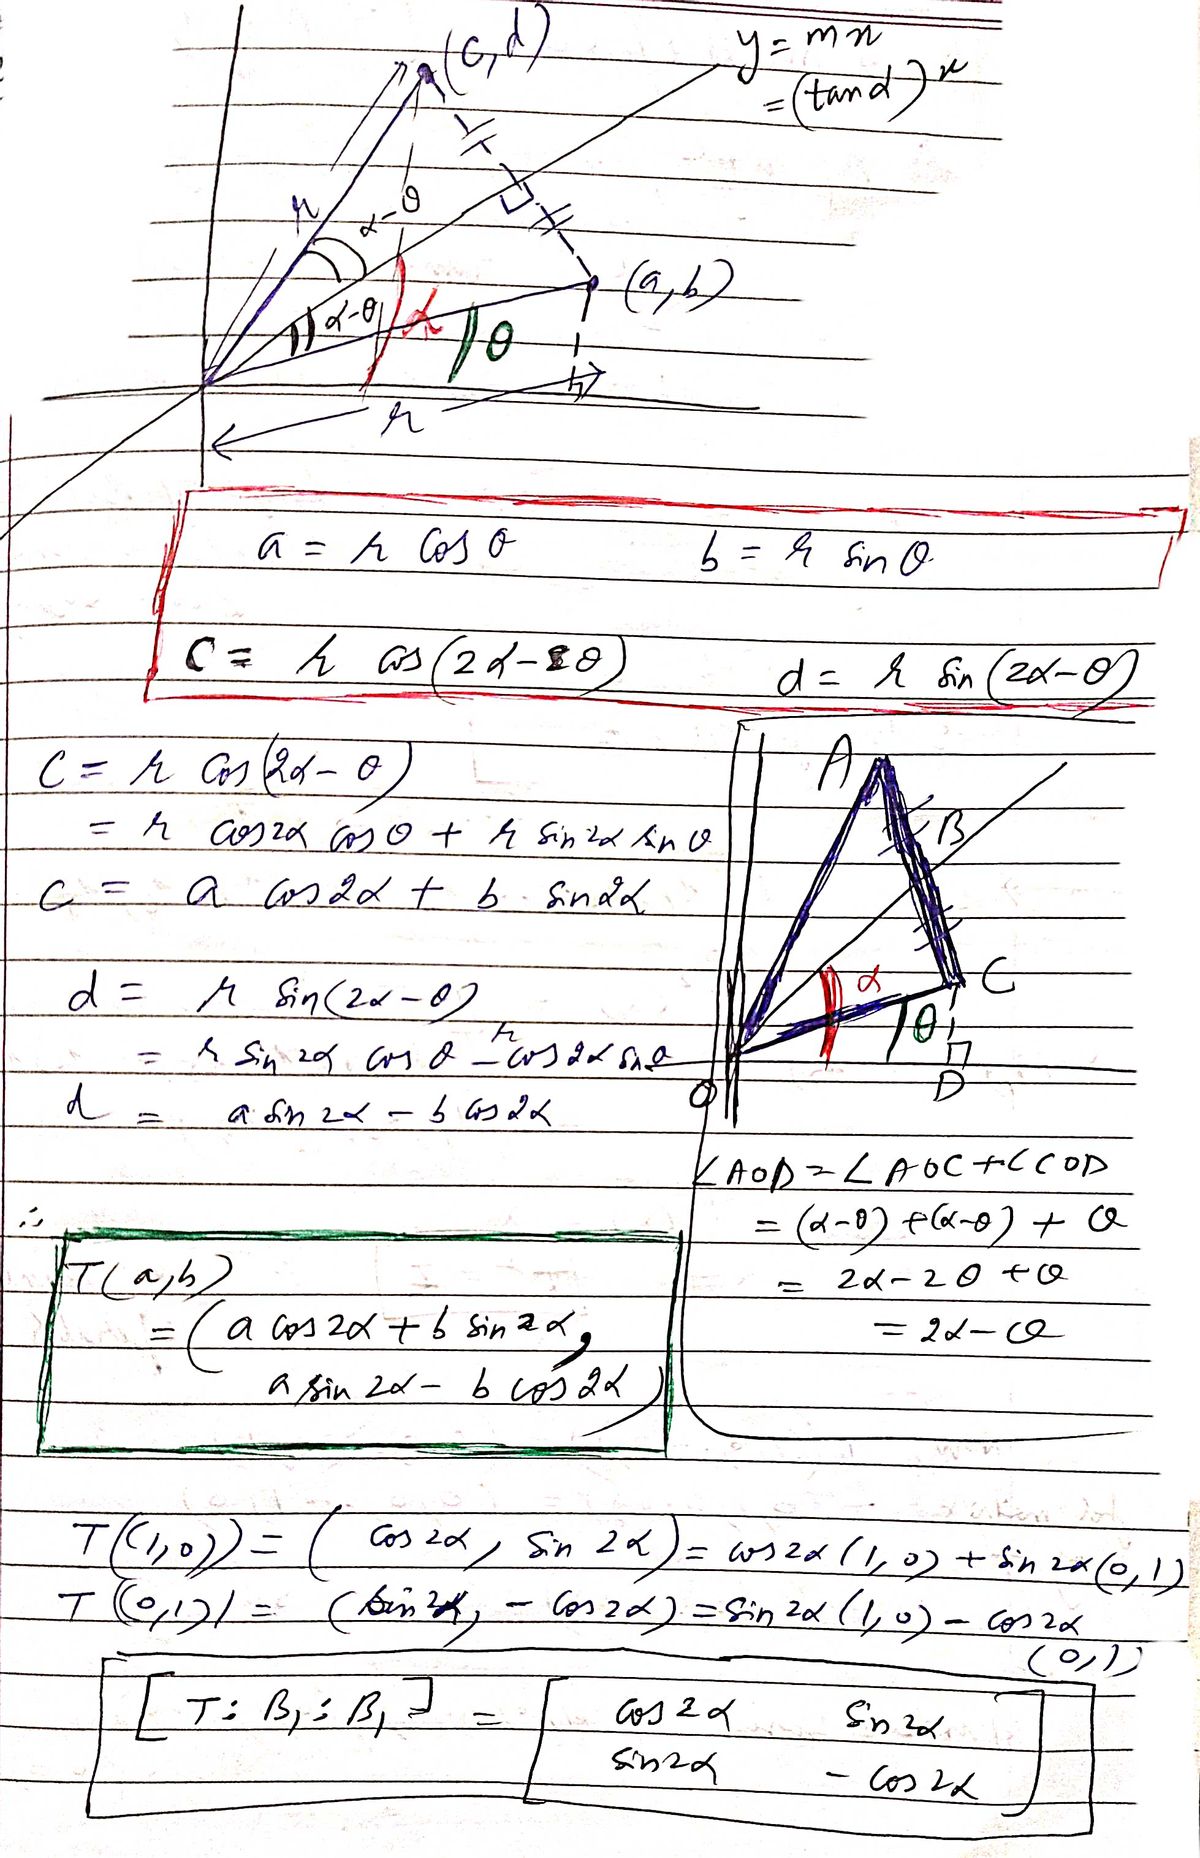 (c, d)
y = mx
= (tanα)x
r
α-θ
(a, b)
α-θ
α
θ
r
a = r cosθ b = r sinθ
C = r cos(2α-θ) d = r sin(2α-θ)
C = r cos(2α-θ)
= r cos2α cosθ + r sin2α sinθ
C = a cos2α + b sin2α
d = r sin(2α-θ)
= r sin2α cosθ - r cos2α sinθ
d = a sin2α - b cos2α
A
B
C
α
θ
O
D
∠AOD = ∠AOC + ∠COD
= (α-θ) + (α-θ) + θ
= 2α-2θ+θ
= 2α-θ
∴
T(a,b)
= (a cos2α + b sin2α,
a sin2α - b cos2α)
T((1,0)) = (cos2α, sin2α) = cos2α(1,0) + sin2α(0,1)
T((0,1)) = (sin2α, -cos2α) = sin2α(1,0) - cos2α
(0,1)
[T: B₁: B₁] = [cos2α sin2α
sin2α -cos2α]